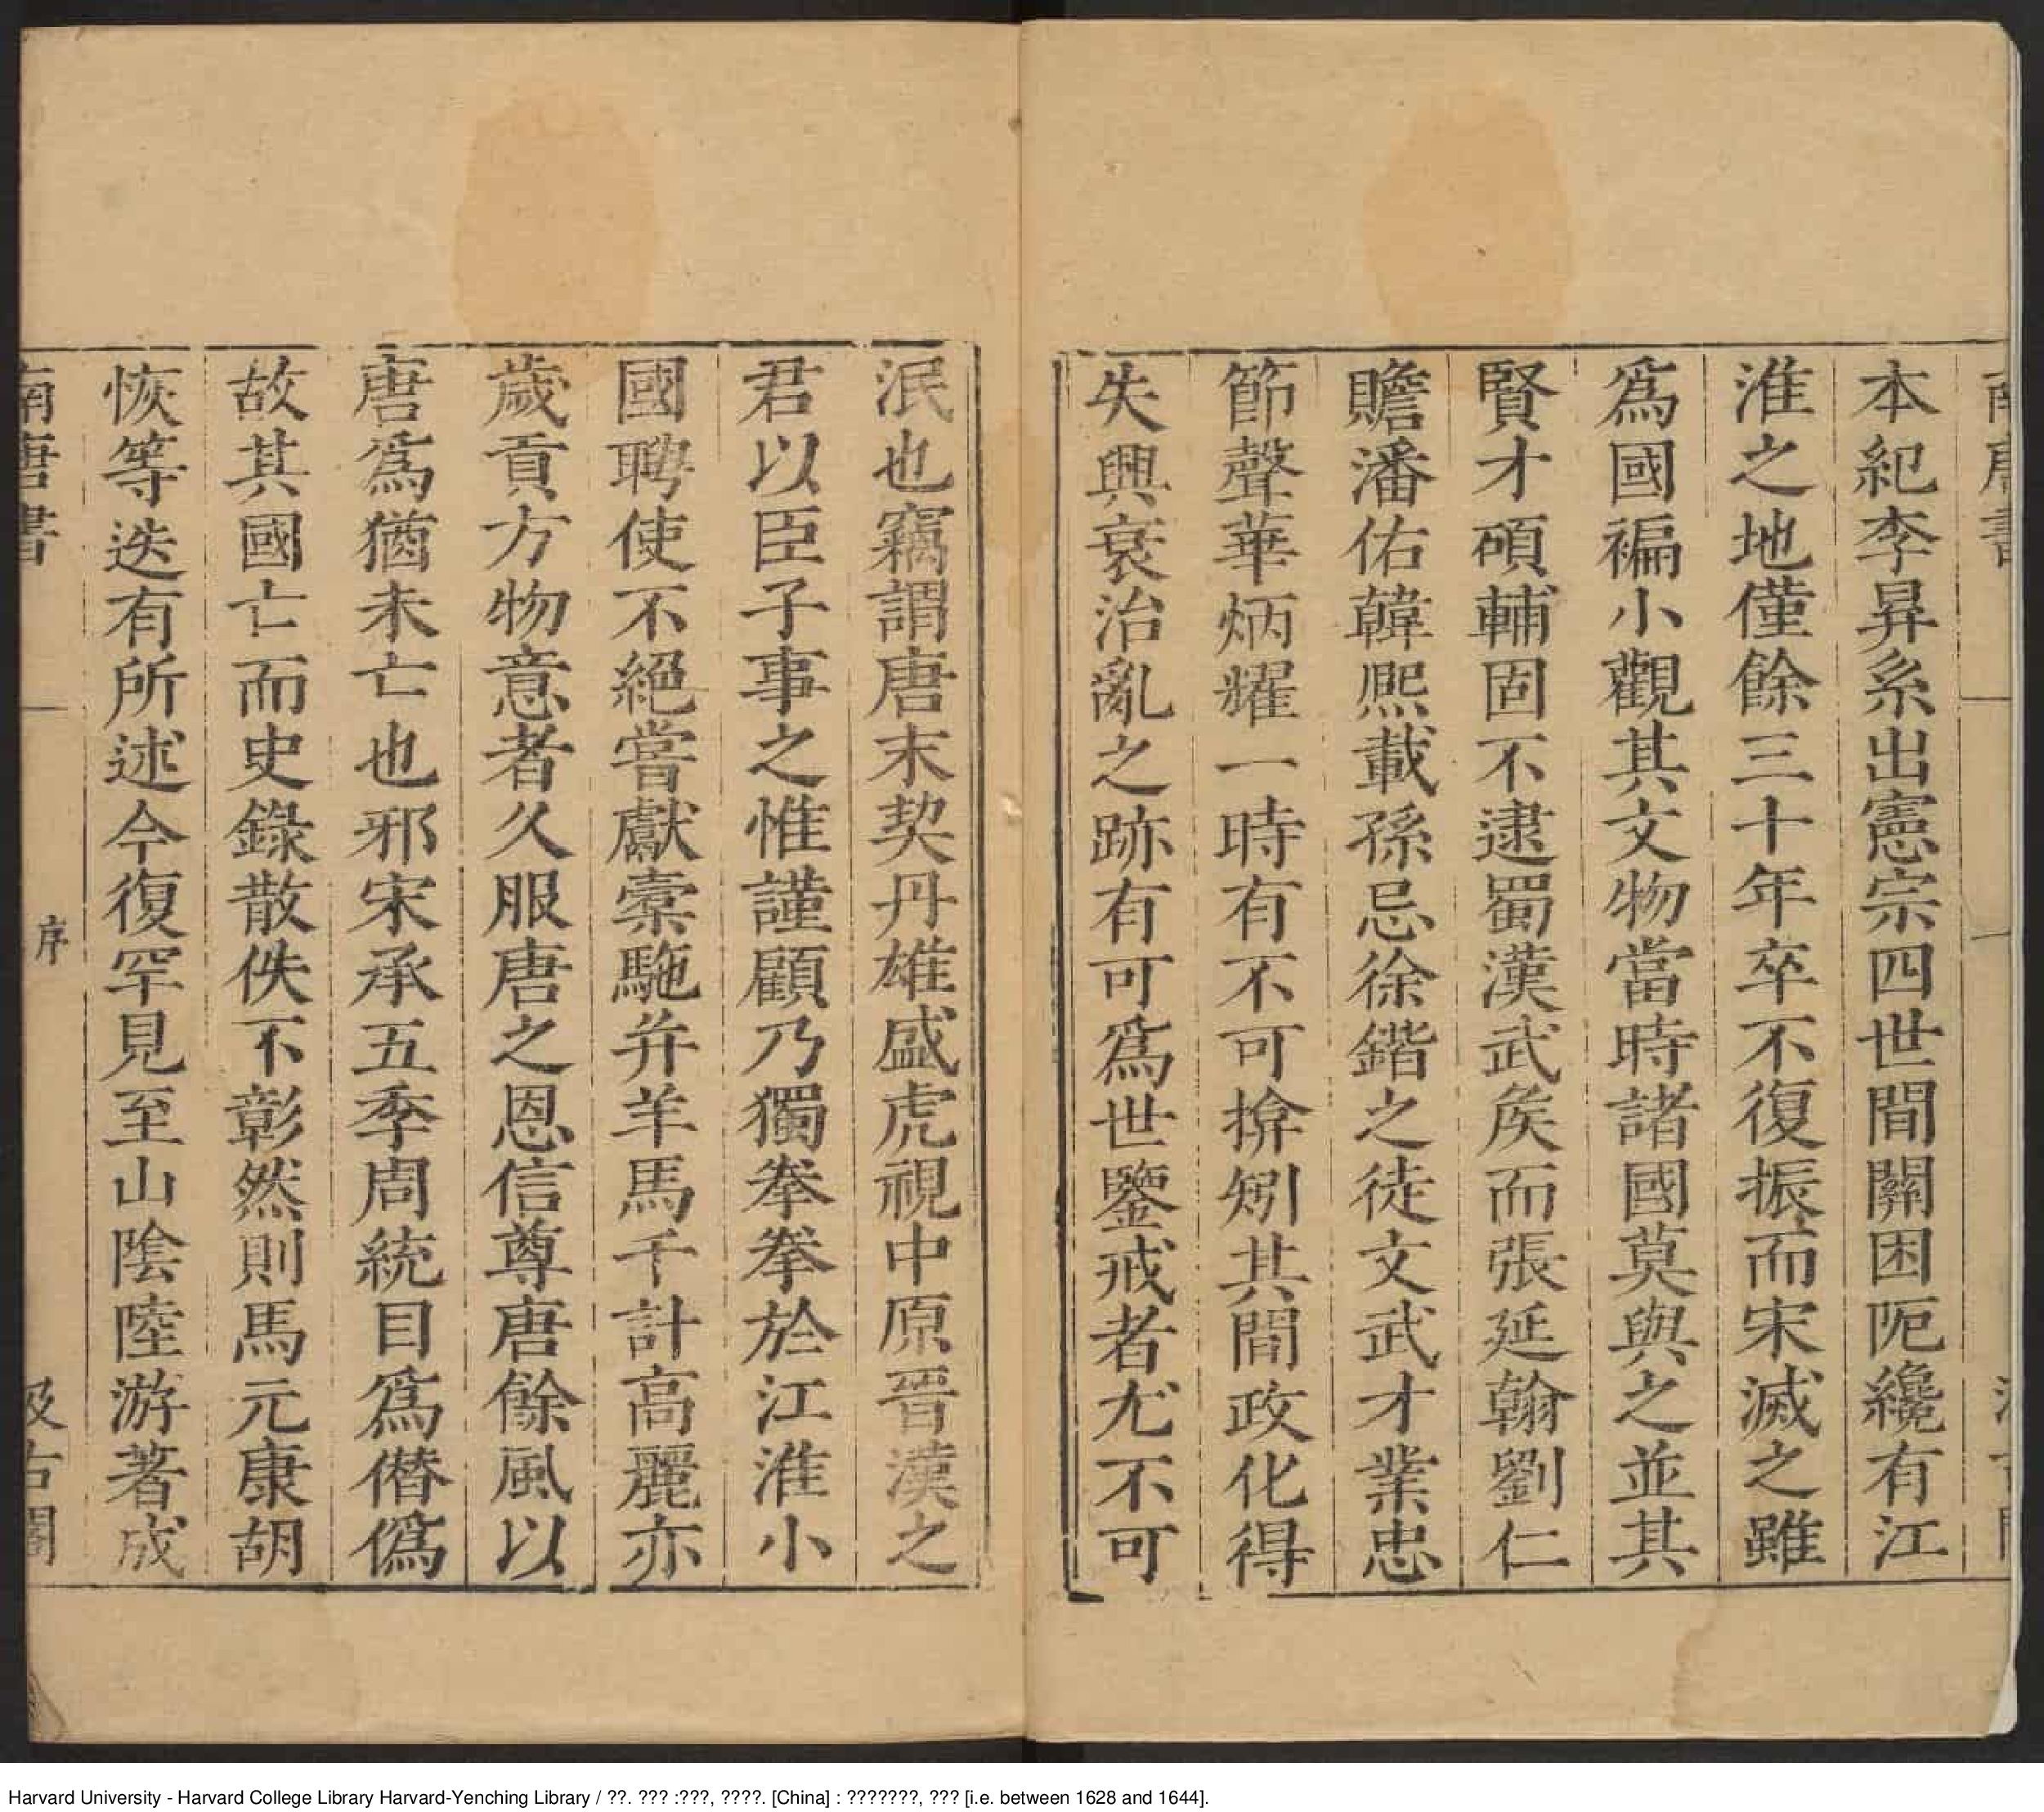 本紀李昇系出憲宗四世間關困阨纔有江
淮之地僅餘三十年卒不復振而宋滅之雖
爲國褊小觀其文物當時諸國莫與之並其
賢才碩輔固不逮蜀漢武矦而張延翰劉仁
贍潘佑韓熙載孫忌徐鍇之徒文武才業忠
節聲華炳耀一時有不可揜矧其間政化得
失興衰治亂之跡有可爲世鑒戒者尤不可
泯也竊謂唐末契丹雄盛虎視中原晉漢之
君以臣子事之惟謹顧乃獨拳拳於江淮小
國聘使不絕嘗獻橐駞并羊馬千計高麗亦
歲貢方物意者久服唐之恩信尊唐餘風以
唐爲猶未亡也邪宋承五季周統目爲僭僞
故其國亡而史錄散佚不彰然則馬元康胡
恢等迭有所述今復罕見至山陰陸游著成
南唐書
序
汲古閣
Harvard University - Harvard College Library Harvard-Yenching Library / ??. ??? :???, ????. [China] : ???????, ??? [i.e. between 1628 and 1644].